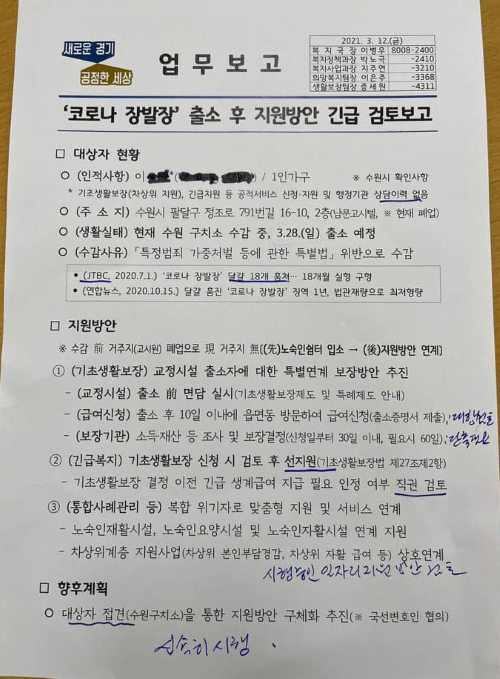 새로운 경기
공정한 세상
업무보고
2021. 3. 12.(금)
복지국장 이병우 8008-2400
복지정책과장 박노극 -2410
복지사업과장 지주연 -3210
희망복지팀장 이은주 -3368
생활보장팀장 -4311
‘코로나 장발장’ 출소 후 지원방안 긴급 검토보고
□ 대상자 현황
○ (인적사항) 이 / 1인가구 ※ 수원시 확인사항
* 기초생활보장(차상위 지원), 긴급지원 등 공적서비스 신청·지원 및 행정기관 상담이력 없음
○ (주 소 지) 수원시 팔달구 정조로 791번길 16-10, 2층(남문고시텔, ※ 현재 폐업)
○ (생활실태) 현재 수원 구치소 수감 중, 3.28.(일) 출소 예정
○ (수감사유) 「특정범죄 가중처벌 등에 관한 특별법」 위반으로 수감
• (JTBC, 2020.7.1.) ‘코로나 장발장’ 달걀 18개 훔쳐… 18개월 실형 구형
• (연합뉴스, 2020.10.15.) 달걀 훔친 ‘코로나 장발장’ 징역 1년, 법관재량으로 최저형량
□ 지원방안
※ 수감 前 거주지(고시원) 폐업으로 現 거주지 無((先)노숙인쉼터 입소 → (後)지원방안 연계)
① (기초생활보장) 교정시설 출소자에 대한 특별연계 보장방안 추진
– (교정시설) 출소 前 면담 실시(기초생활보장제도 및 특례제도 안내)
– (급여신청) 출소 후 10일 이내에 읍면동 방문하여 급여신청(출소증명서 제출),
– (보장기관) 소득재산 등 조사 및 보장결정(신청일부터 30일 이내, 필요시 60일),
② (긴급복지) 기초생활보장 신청 시 검토 후 선지원(기초생활보장법 제27조제2항)
– 기초생활보장 결정 이전 긴급 생계급여 지급 필요 인정 여부 직권 검토
③ (통합사례관리 등) 복합 위기자로 맞춤형 지원 및 서비스 연계
– 노숙인재활시설, 노숙인요양시설 및 노숙인자활시설 연계 지원
– 차상위계층 지원사업(차상위 본인부담경감, 차상위 자활 급여 등) 상호연계
일자리지원 방안 검토
□ 향후계획
○ 대상자 접견(수원구치소)을 통한 지원방안 구체화 추진(※ 국선변호인 협의)
신속히 시행.